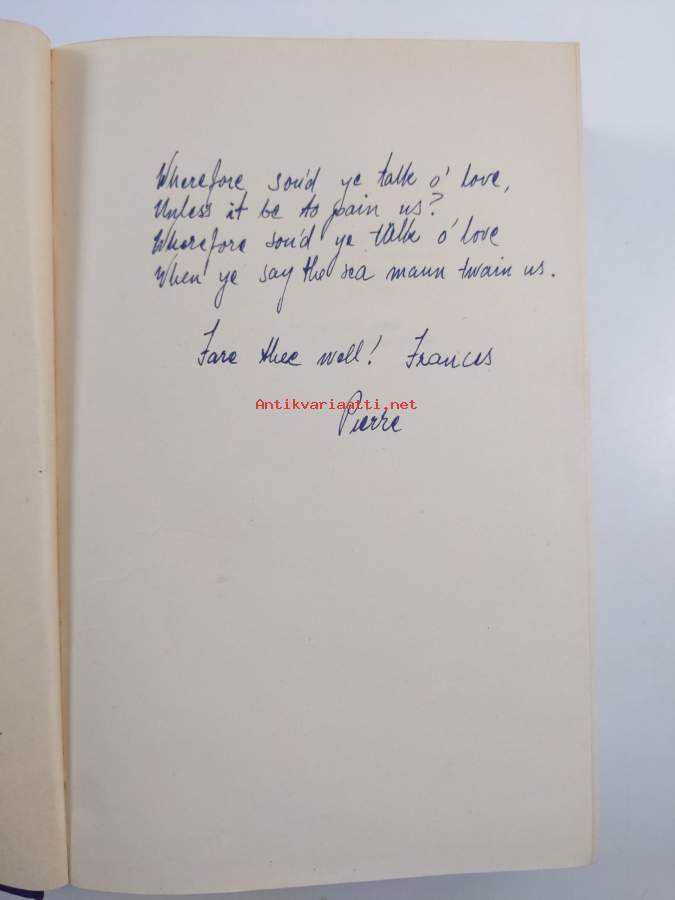 Wherefore sou'd ye talk o' love,
Unless it be to pain us?
Wherefore sou'd ye talk o' love
When ye say the sea maun twain us.
Fare thee well! Frances
Antikvariaatti.net
Pierre